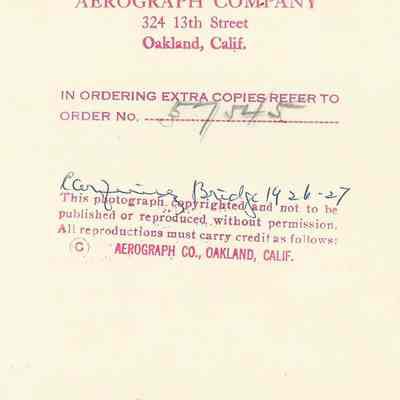 AEROGRAPH COMPANY
324 13th Street
Oakland, Calif.
IN ORDERING EXTRA COPIES REFER TO
ORDER No. 57545
Bridge 1926-27
This photograph copyrighted and not to be
published or reproduced without permission.
All reproductions must carry credit as follows:
© AEROGRAPH CO., OAKLAND, CALIF.